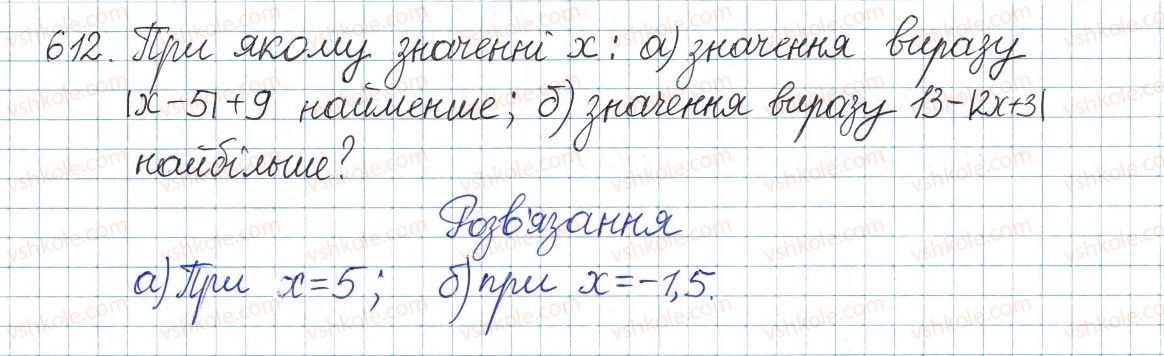 612. При якому значенні x: а) значення виразу
|x-5|+9 найменше; б) значення виразу 13-|2x+3|
найбільше?
Розв'язання
а) При x=5; б) при x=-1,5.